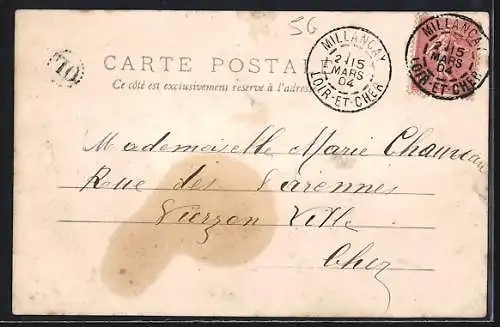 56
CARTE POSTALE
Ce côté est exclusivement réservé à l'adresse
OL
MILLANÇAY
2 15
MARS
04
LOIR-ET-CHER
MILLANÇAY
2 15
MARS
04
LOIR-ET-CHER
Mademoiselle Marie
Rue des Varennes
Vierzon Ville
Cher